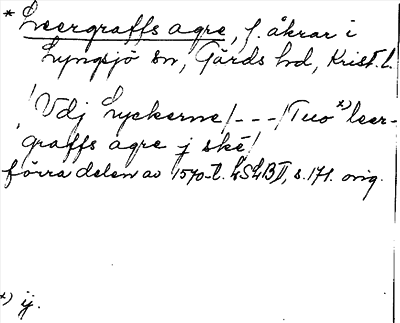 * Leergraffs agre, f. åkrar i
Lyngsjö sn, Gärds hd, Krist. l.
"Vdj Lyckerne /---/ Tuo x) leer-
graffs agre j skë"
förra delen av 1570-t. LSLB II, s. 171. orig.
x) ij.